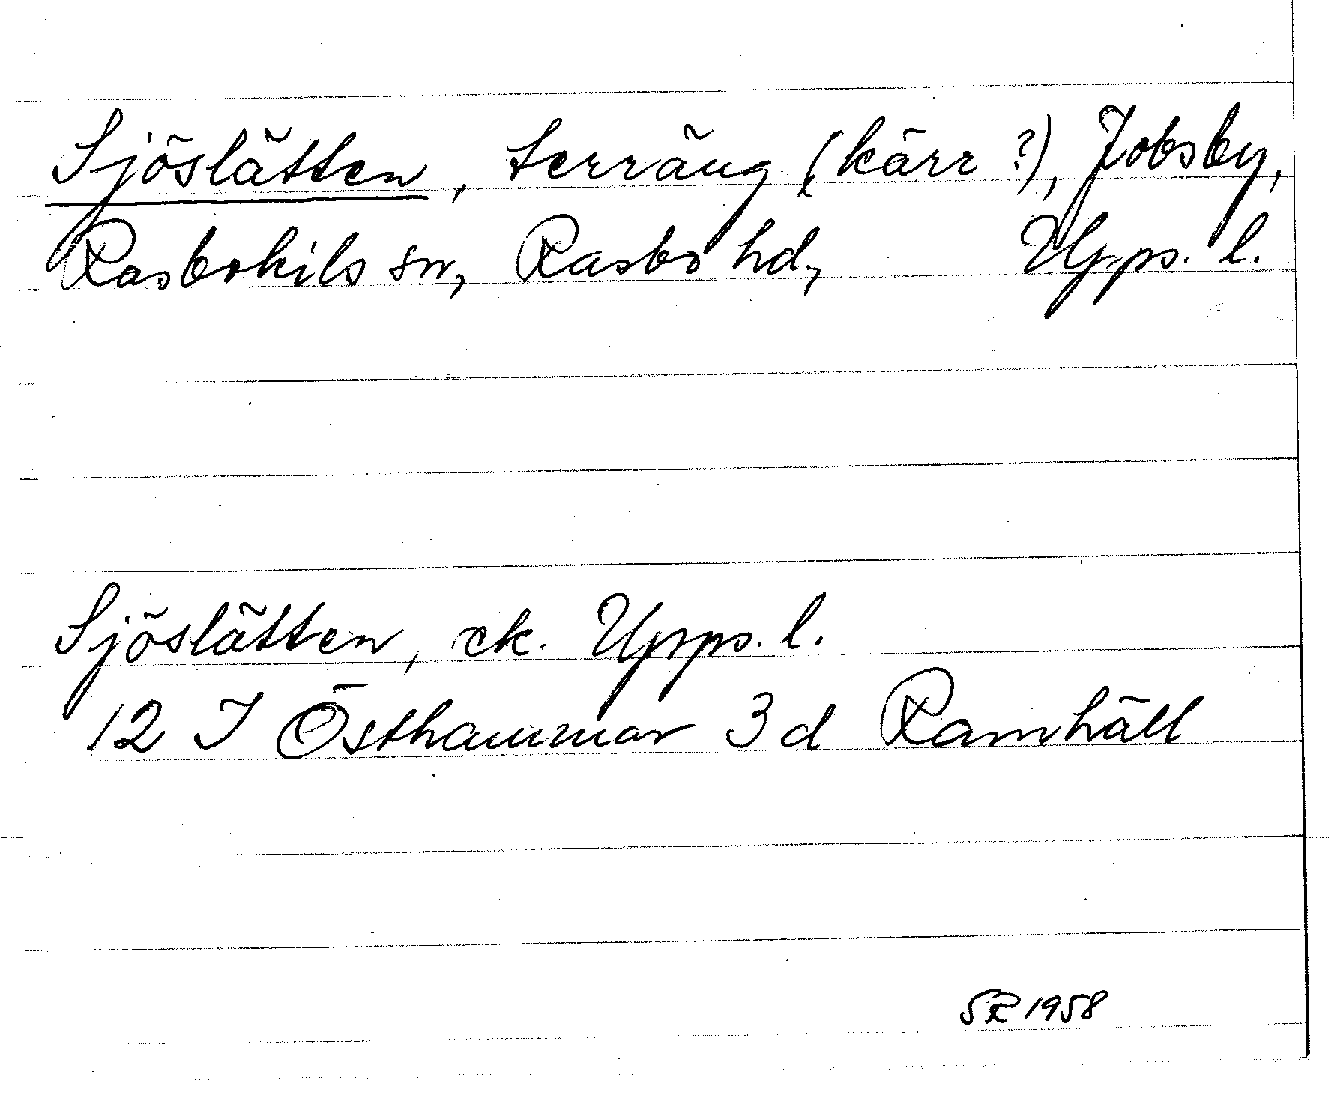 Sjöslätten, terräng (kärr?), Jobsby,
Rasbokils sn, Rasbo hd, Upps. l.
Sjöslätten, ek. Upps. l.
12 I Östhammar 3 d Ramhäll
SR 1958